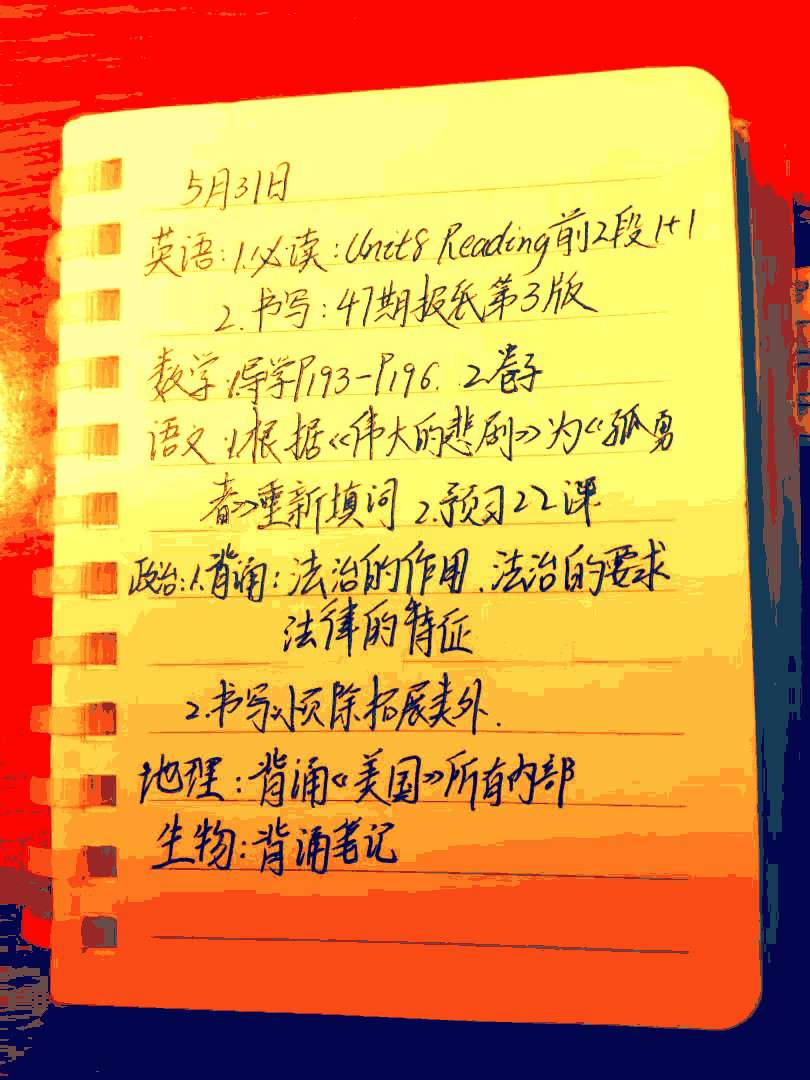 5月31日
英语:1.必读:Unit8 Reading前2段1+1
2.书写:47期报纸第3版
数学:1.导学P193-P196. 2.卷子
语文:1.根据《伟大的悲剧》为《孤勇
者》重新填词 2.预习22课
政治:1.背诵:法治的作用.法治的要求
法律的特征
2.书写:小页除拓展类外.
地理:背诵《美国》所有内部
生物:背诵笔记